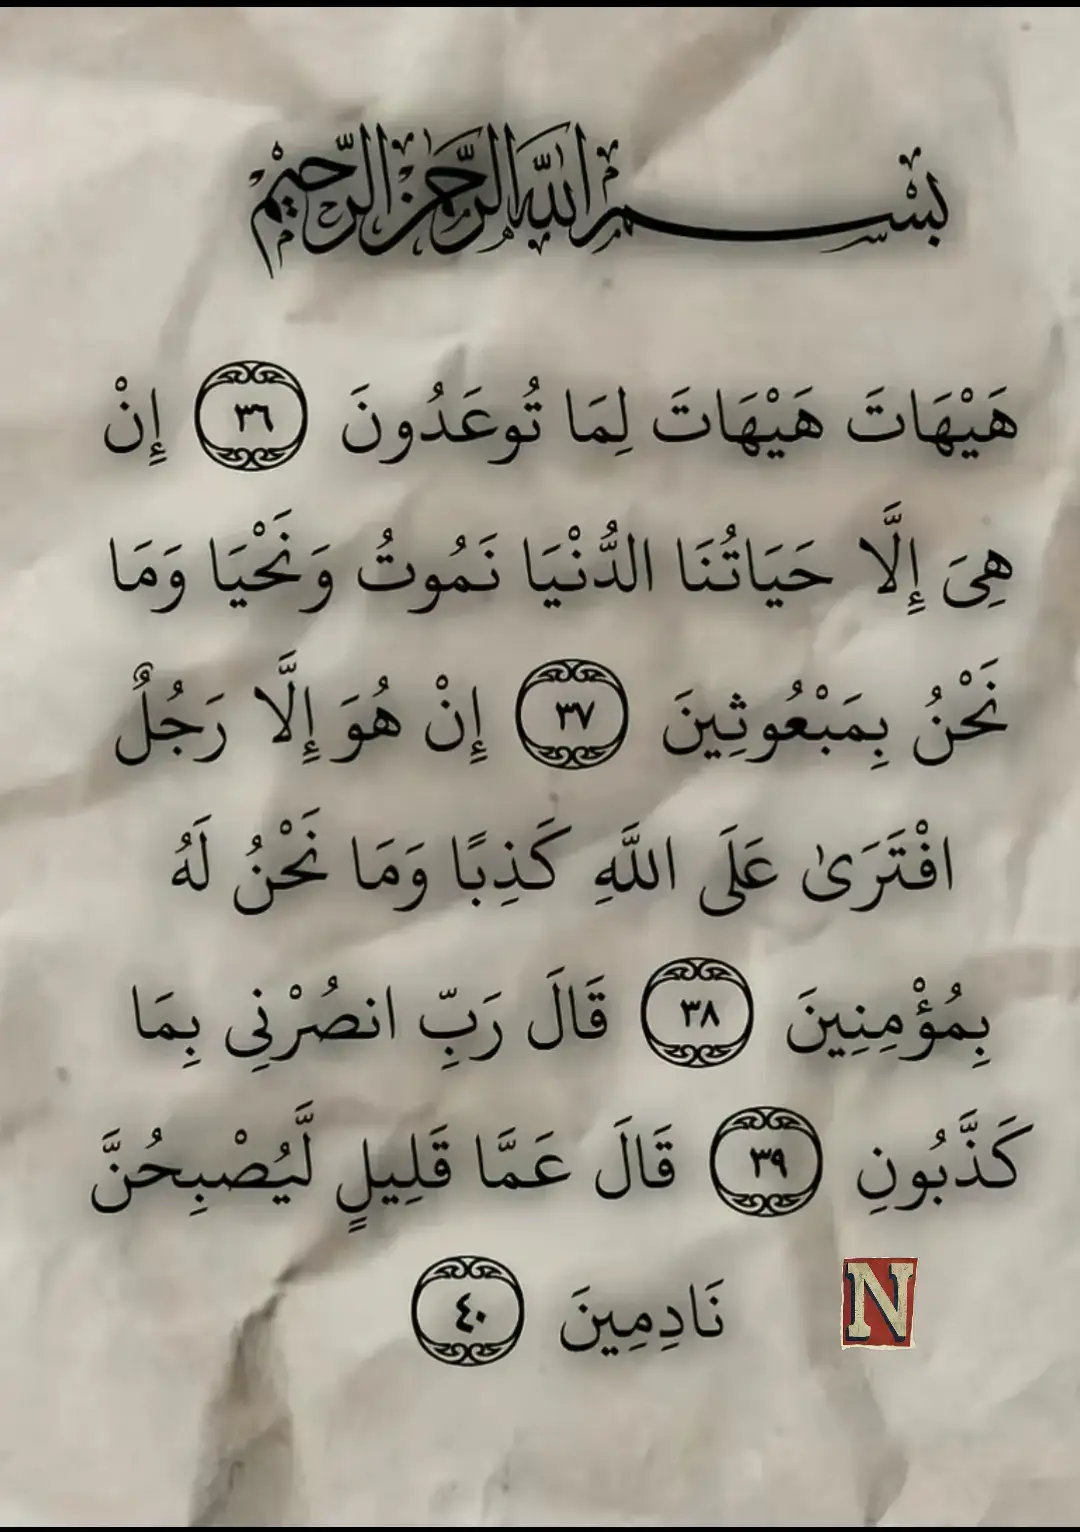 بسم الله الرحمن الرحيم
هَيْهَاتَ هَيْهَاتَ لِمَا تُوعَدُونَ ٣٦ إِنْ
هِىَ إِلَّا حَيَاتُنَا الدُّنْيَا نَمُوتُ وَنَحْيَا وَمَا
نَحْنُ بِمَبْعُوثِينَ ٣٧ إِنْ هُوَ إِلَّا رَجُلٌ
افْتَرَىٰ عَلَى اللَّهِ كَذِبًا وَمَا نَحْنُ لَهُ
بِمُؤْمِنِينَ ٣٨ قَالَ رَبِّ انصُرْنِى بِمَا
كَذَّبُونِ ٣٩ قَالَ عَمَّا قَلِيلٍ لَّيُصْبِحُنَّ
نَادِمِينَ ٤٠
N